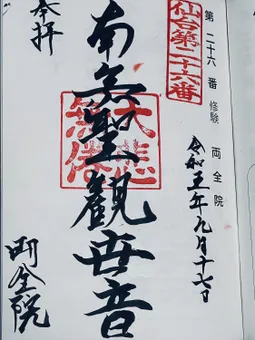 第二十六番 修験 両全院
仙台第二十六番
令和五年九月十七日
南無聖観世音
奉拝
両全院